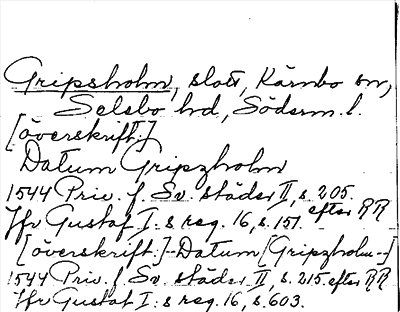 Gripsholm, slott, Kärnbo sn,
Selebo hd, Söderm. l.
[överskrift:]
Datum Gripzholm
1544 Priv. f. Sv. städer II, s. 205.
Jfr Gustaf I:s reg. 16, s. 151. efter RR
[överskrift:]--Datum [Gripzholm--]
1544 Priv. f. Sv. städer II, s. 215. efter RR
Jfr Gustaf I:s reg. 16, s. 603.